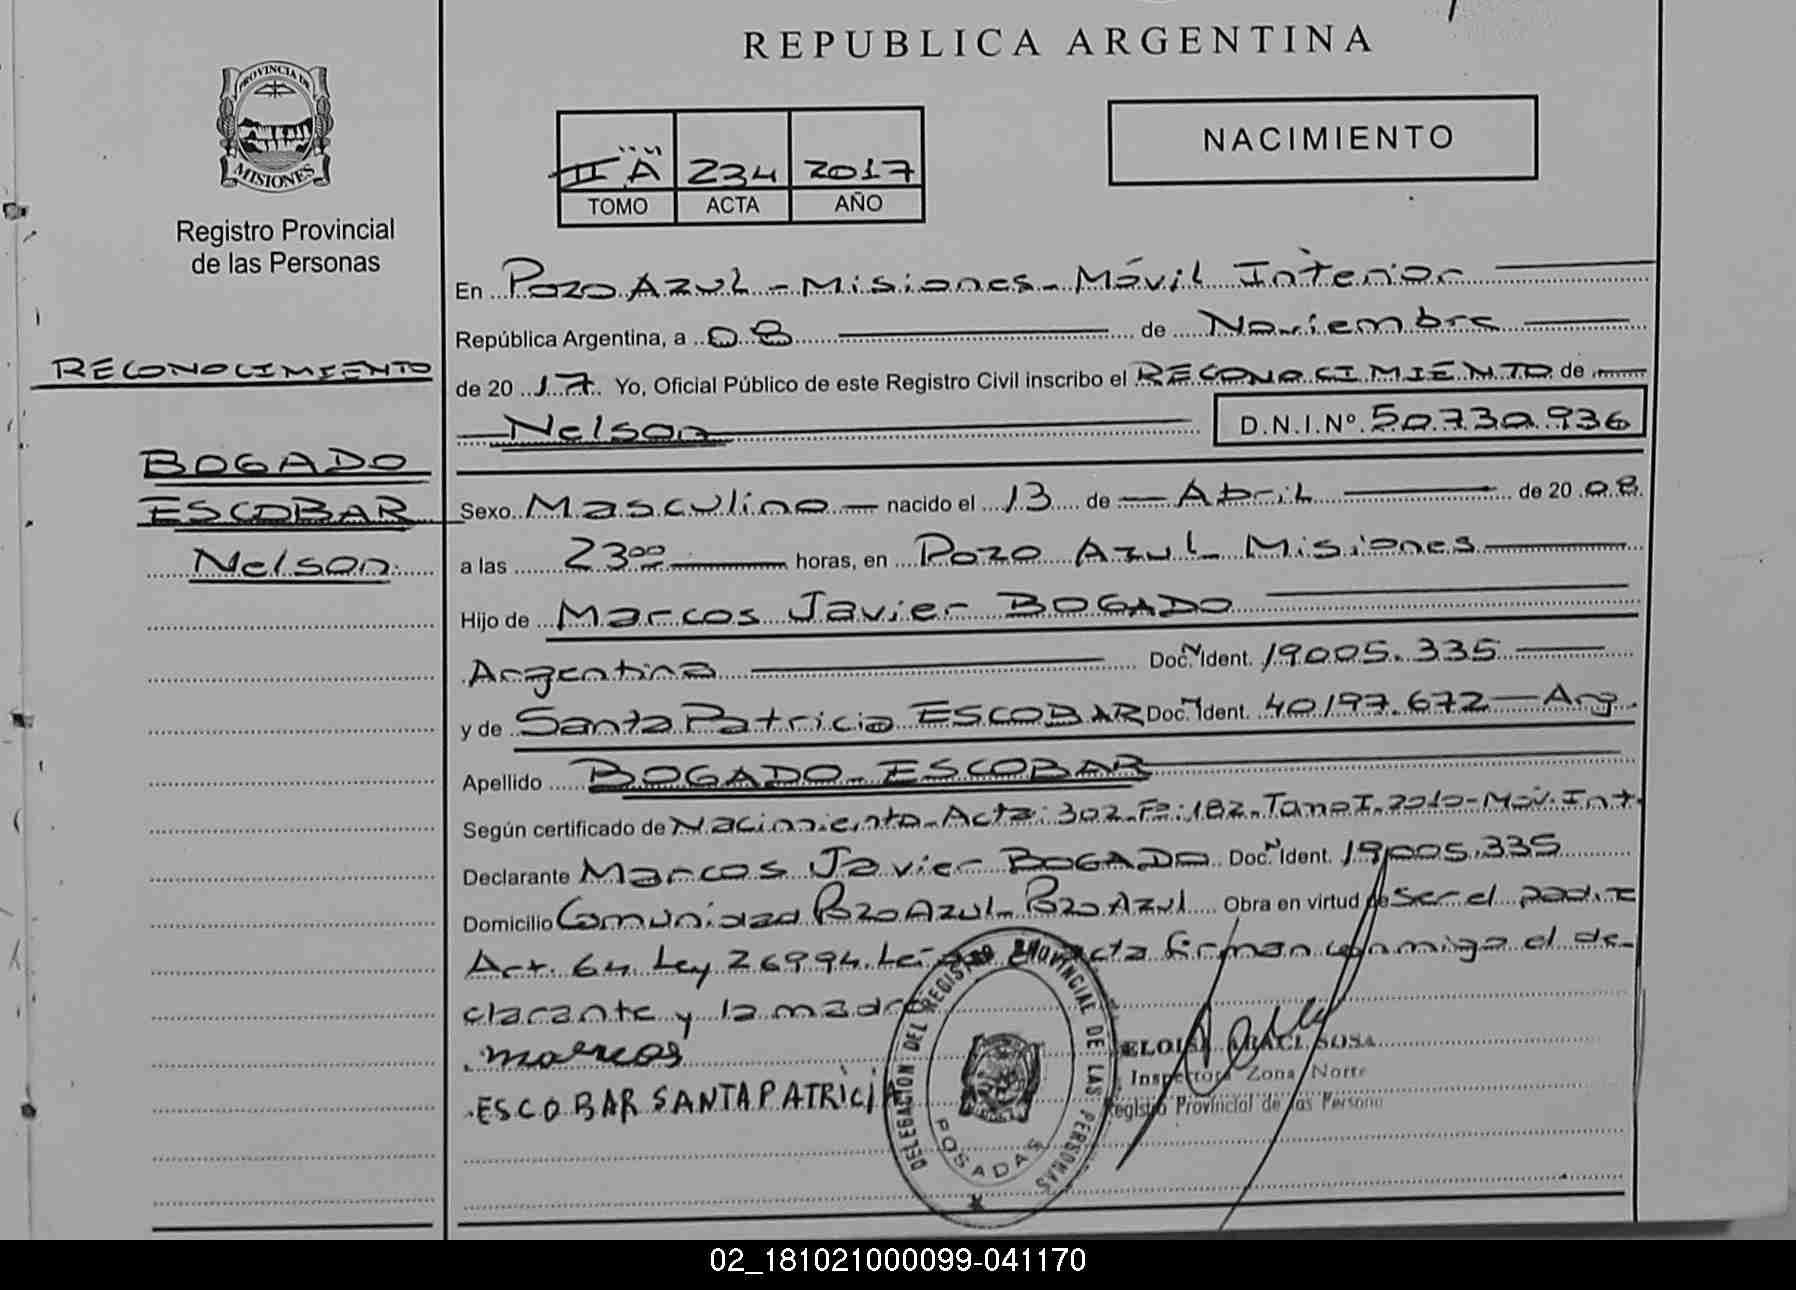 REPUBLICA ARGENTINA
PROVINCIA DE
MISIONES
Registro Provincial
de las Personas
RECONOCIMIENTO
BOGADO
ESCOBAR
Nelson
II "A" 234 2017
TOMO ACTA AÑO
NACIMIENTO
En Pozo Azul - Misiones - Móvil Interior
República Argentina, a 08 de Noviembre
de 20 17. Yo, Oficial Público de este Registro Civil inscribo el RECONOCIMIENTO de
Nelson D.N.I.Nº 50.730.936
Sexo Masculino nacido el 13 de Abril de 20 08
a las 23 00 horas, en Pozo Azul - Misiones
Hijo de Marcos Javier BOGADO
Argentina Doc. N Ident. 19.005.335
y de Santa Patricia ESCOBAR Doc. N Ident. 40.197.672 - Arg.
Apellido BOGADO ESCOBAR
Según certificado de Nacimiento - Acta: 302 - Fº: 182 - Tomo I - 2010 - Móv. Int.
Declarante Marcos Javier BOGADO Doc. N Ident. 19.005.335
Domicilio Comunidad Pozo Azul - Pozo Azul Obra en virtud de Ser el padre
Art. 64 Ley 26994. Leída acta firman conmigo el de-
clarante y la madre
marcos
ESCOBAR SANTA PATRICIA
DELEGACION DEL REGISTRO PROVINCIAL DE LAS PERSONAS
POSADAS
ELOISA ARACI SOSA
Inspectora Zona Norte
Registro Provincial de las Persona
02_181021000099-041170